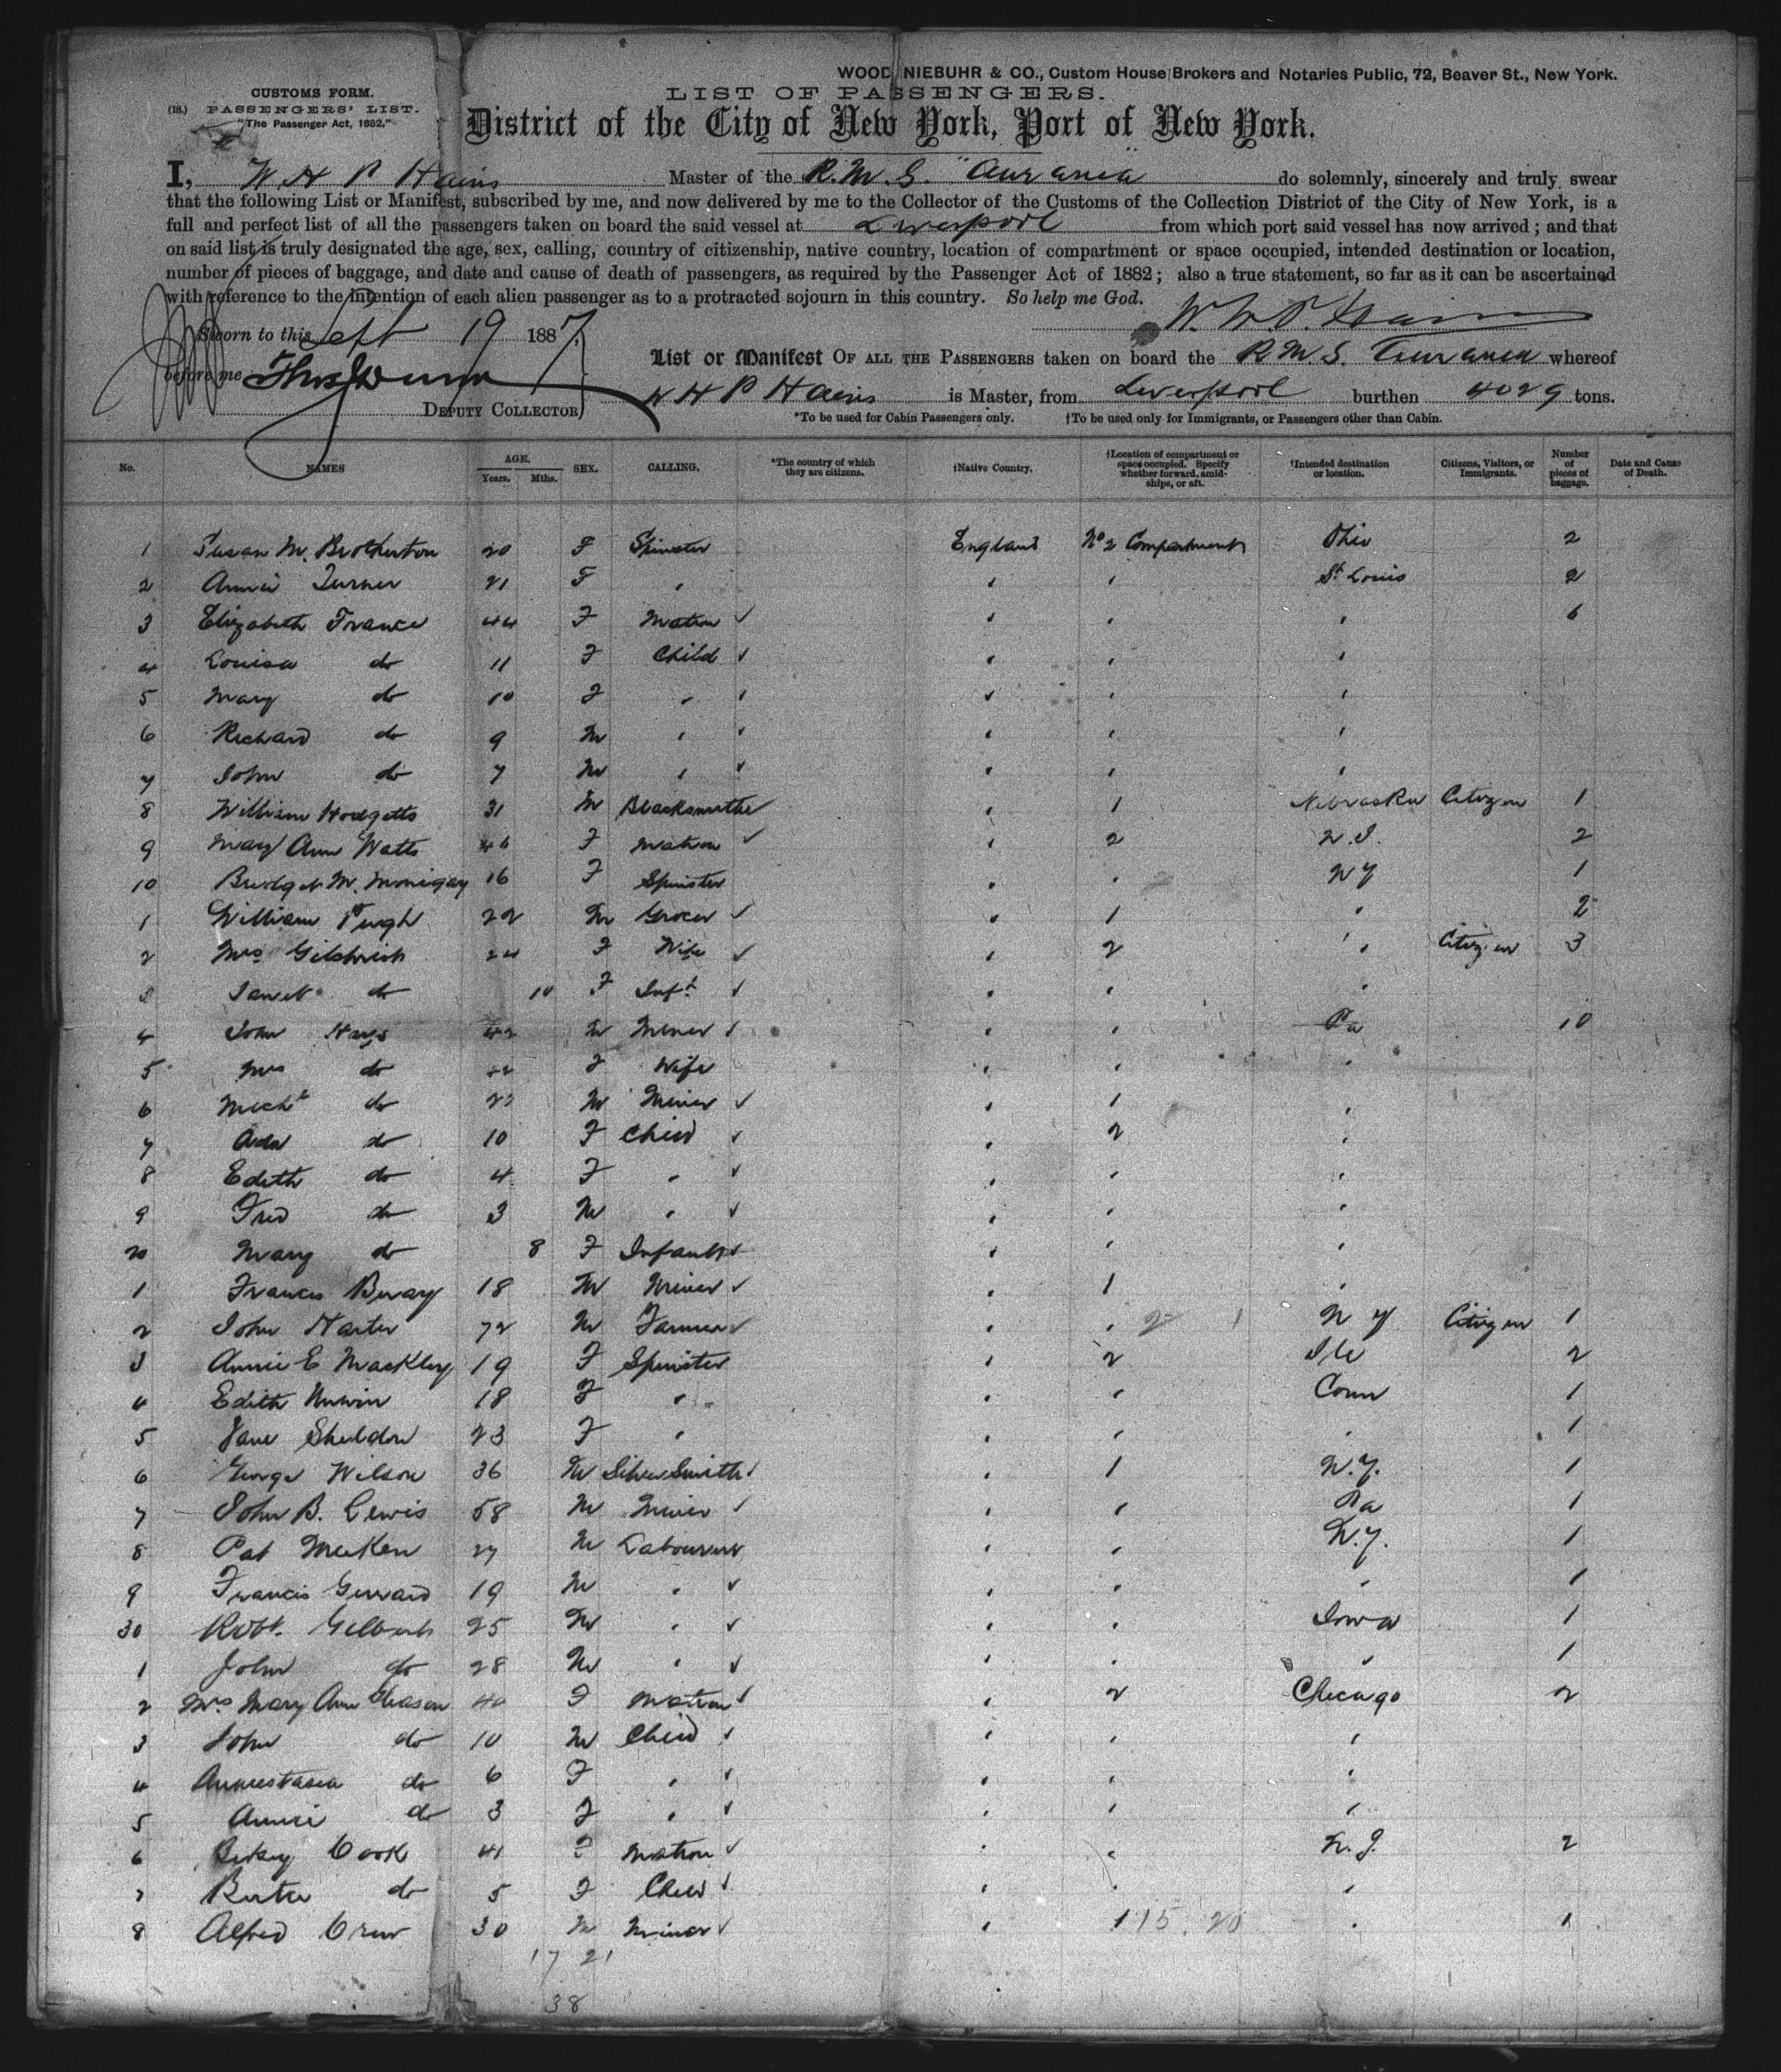 WOOD, NIEBUHR & CO., Custom House Brokers and Notaries Public, 72, Beaver St., New York.
CUSTOMS FORM.
(18.) PASSENGERS' LIST.
"The Passenger Act, 1882."
LIST OF PASSENGERS.
District of the City of New York, Port of New York.
I, W H P Hains Master of the R.M.S. "Aurania" do solemnly, sincerely and truly swear
that the following List or Manifest, subscribed by me, and now delivered by me to the Collector of the Customs of the Collection District of the City of New York, is a
full and perfect list of all the passengers taken on board the said vessel at Liverpool from which port said vessel has now arrived; and that
on said list is truly designated the age, sex, calling, country of citizenship, native country, location of compartment or space occupied, intended destination or location,
number of pieces of baggage, and date and cause of death of passengers, as required by the Passenger Act of 1882; also a true statement, so far as it can be ascertained
with reference to the intention of each alien passenger as to a protracted sojourn in this country. So help me God.
W. H. P. Hains
Sworn to this Sept 19 1887
before me
DEPUTY COLLECTOR
List or Manifest OF ALL THE PASSENGERS taken on board the R.M.S. Aurania whereof
W H P Hains is Master, from Liverpool burthen 4029 tons.
*To be used for Cabin Passengers only. †To be used only for Immigrants, or Passengers other than Cabin.
No. NAMES AGE. Years. Mths. SEX. CALLING. *The country of which they are citizens. †Native Country. †Location of compartment or space occupied. Specify whether forward, amidships, or aft. †Intended destination or location. Citizens, Visitors, or Immigrants. Number of pieces of baggage. Date and Cause of Death.
1 Susan M. Brotherton 20 F Spinster England No 2 Compartment Ohio 2
2 Annie Turner 21 F " " " St Louis 2
3 Elizabeth France 44 F Matron " " " 6
4 Louisa do 11 F Child " " "
5 Mary do 10 F " " " "
6 Richard do 9 M " " " "
7 John do 7 M " " " "
8 William Hodgetts 31 M Blacksmith " 1 Nebraska Citizen 1
9 Mary Ann Watts 46 F Matron " 2 N.J. 2
10 Bridget M. Monigay 16 F Spinster " " NY 1
1 William Pugh 22 M Grocer " 1 " 2
2 Mrs Gilchrist 24 F Wife " 2 " Citizen 3
3 Janet do 10 F Inft " " "
4 John Hays 42 M Miner " " Pa 10
5 Mrs do 42 F Wife " " "
6 Michl do 22 M Miner " 1 "
7 Ada do 10 F Child " 2 "
8 Edith do 4 F " " " "
9 Fred do 3 M " " " "
20 Mary do 8 F Infant " " "
1 Francis Beway 18 M Miner " 1 "
2 John Harter 72 M Farmer " " 2 1 N Y Citizen 1
3 Annie E Mackley 19 F Spinster " 2 Ill 2
4 Edith Unwin 18 F " " " Conn 1
5 Jane Sheldon 23 F " " " " 1
6 George Wilson 36 M Silver Smith " 1 N.Y. 1
7 John B. Lewis 58 M Miner " " Pa 1
8 Pat Meeken 27 M Labourer " " N.Y. 1
9 Francis Gerrard 19 M " " " " 1
30 Robt. Gilbert 25 M " " " Iowa 1
1 John do 28 M " " " " 1
2 Mrs Mary Ann Gleason 40 F Matron " 2 Chicago 2
3 John do 10 M Child " " "
4 Annestasia do 6 F " " " "
5 Annie do 3 F " " " "
6 Betsy Cook 41 F Matron " " N.J. 2
7 Bertie do 5 F Child " " "
8 Alfred Crew 30 M Miner " 1 15 20 " 1
17 21
38